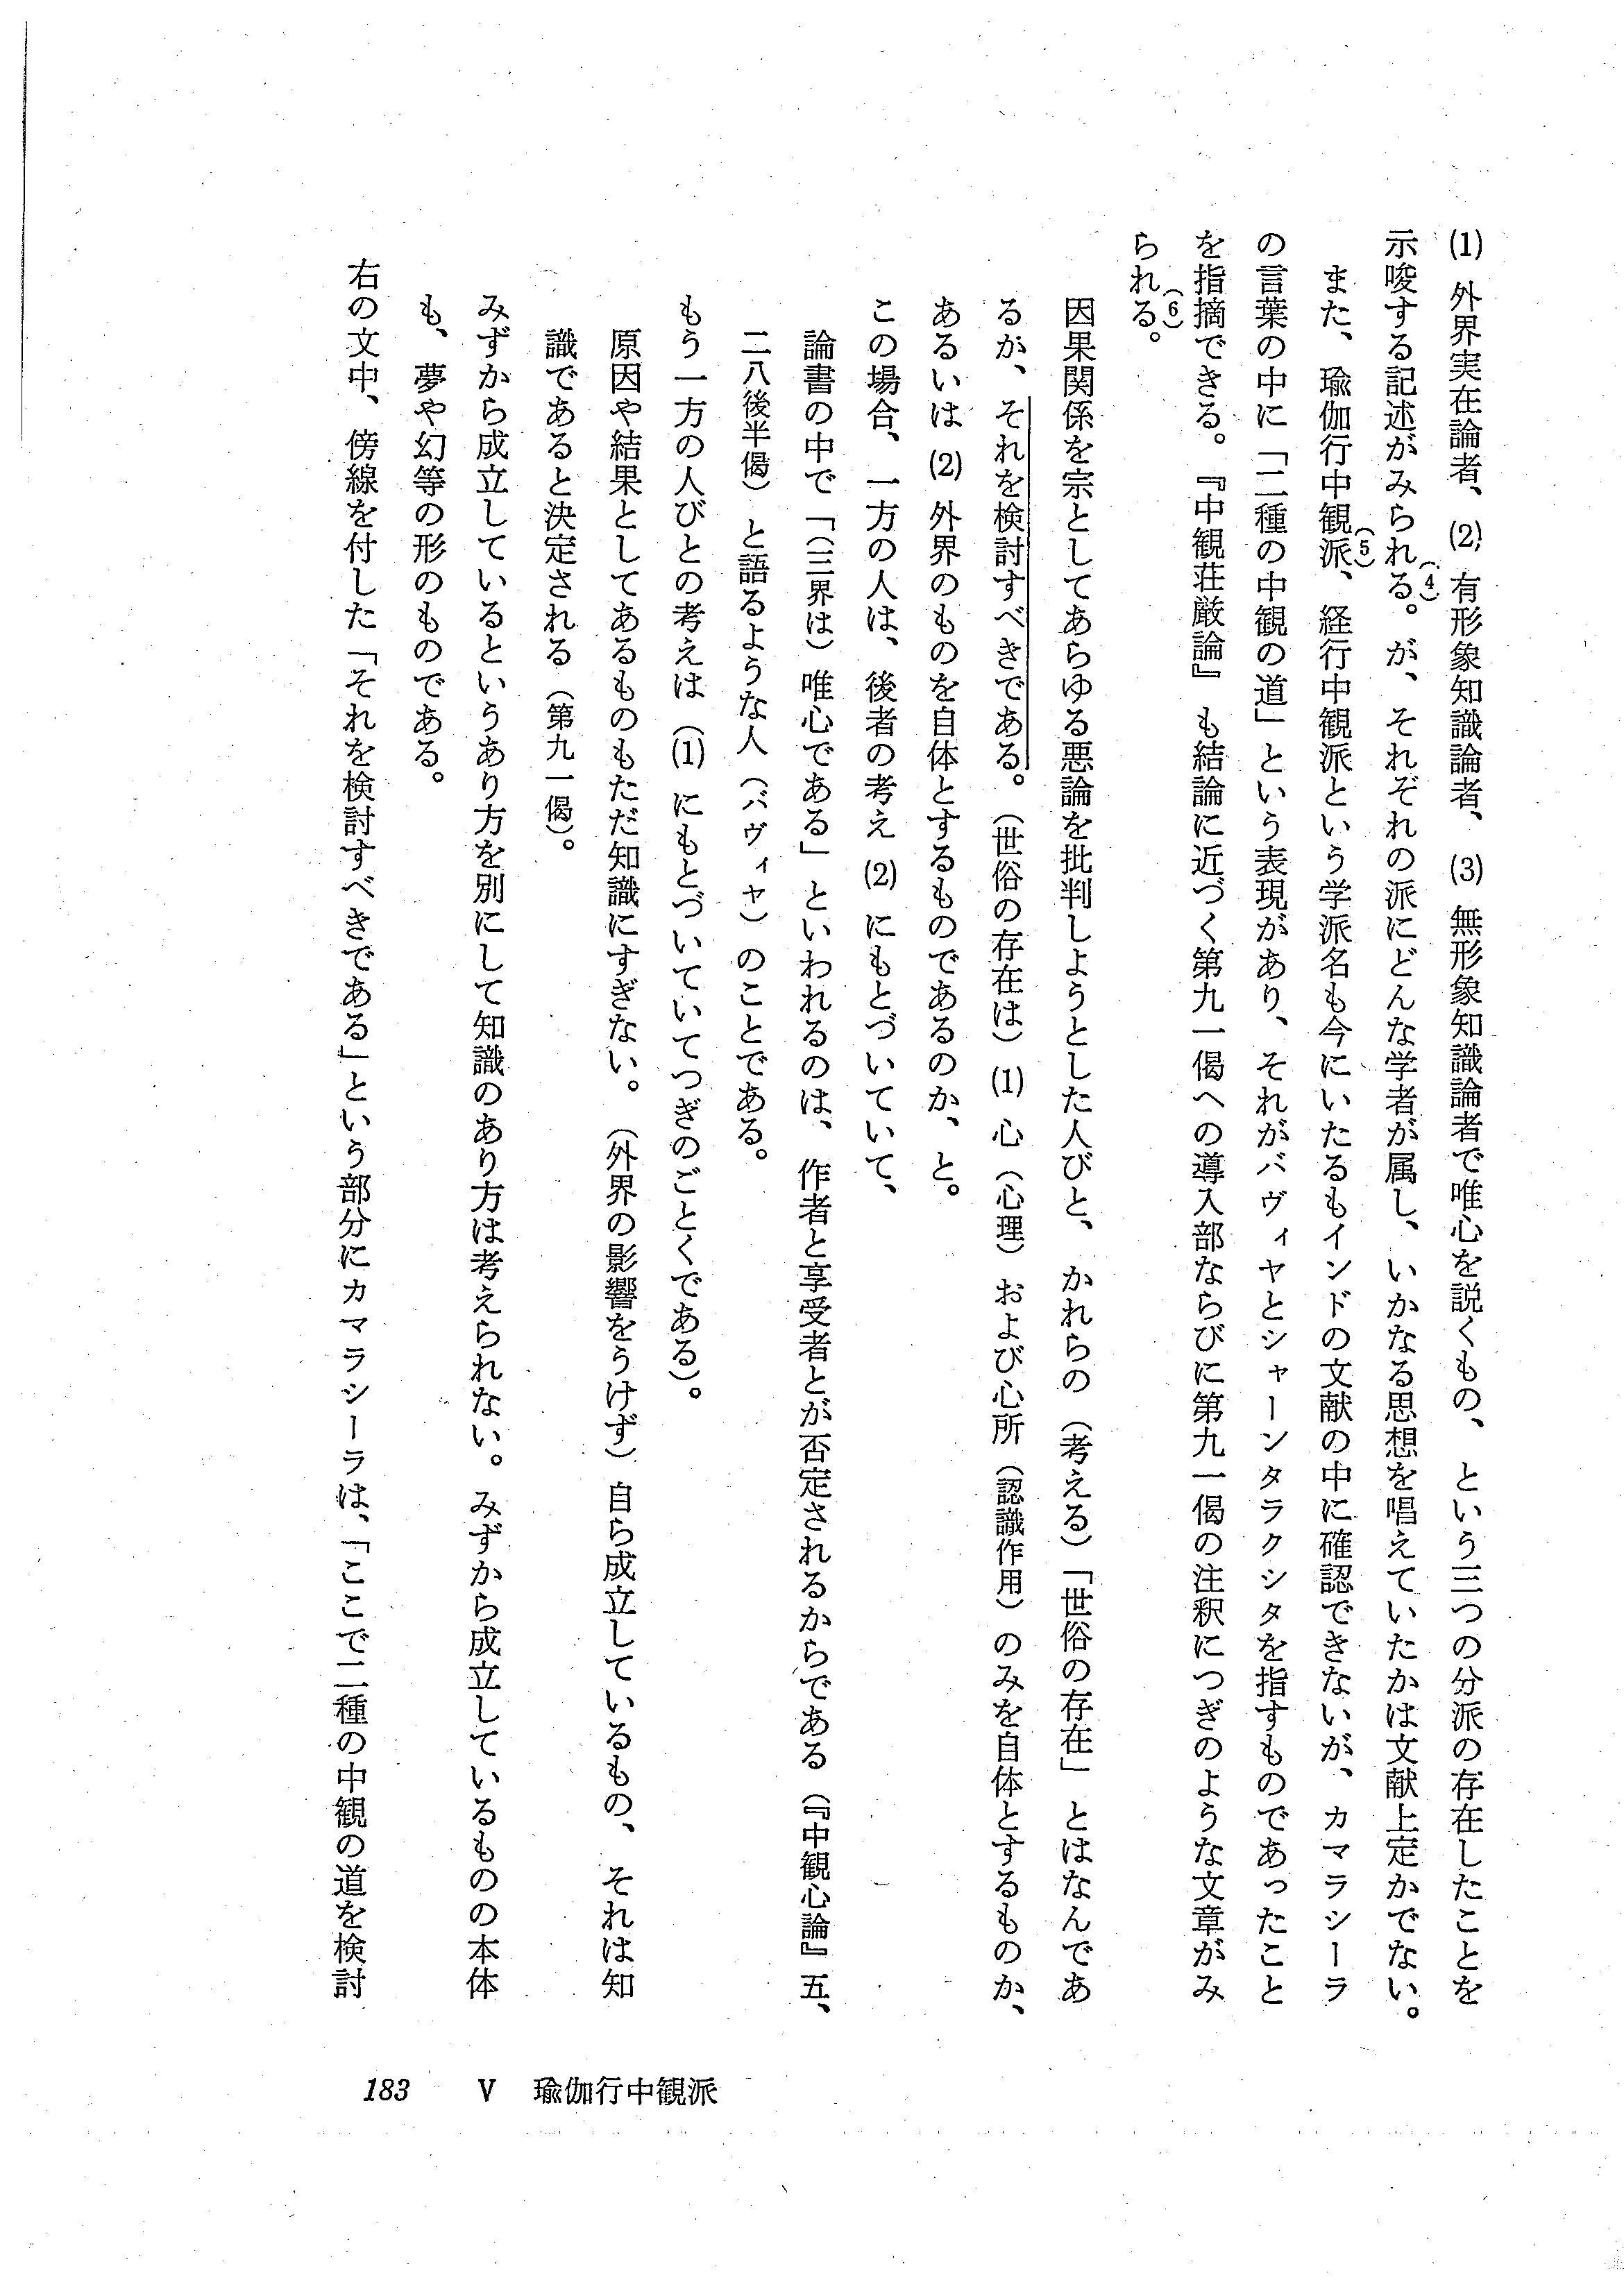 (1) 外界実在論者、(2) 有形象知識論者、(3) 無形象知識論者で唯心を説くもの、という三つの分派の存在したことを
示唆する記述がみられる。(4)が、それぞれの派にどんな学者が属し、いかなる思想を唱えていたかは文献上定かでない。
また、瑜伽行中観派、(5)経行中観派という学派名も今にいたるもインドの文献の中に確認できないが、カマラシーラ
の言葉の中に「二種の中観の道」という表現があり、それがバヴィヤとシャーンタラクシタを指すものであったこと
を指摘できる。(6)『中観荘厳論』も結論に近づく第九一偈への導入部ならびに第九一偈の注釈につぎのような文章がみ
られる。
因果関係を宗としてあらゆる悪論を批判しようとした人びと、かれらの（考える）「世俗の存在」とはなんであ
るか、それを検討すべきである。（世俗の存在は）(1) 心（心理）および心所（認識作用）のみを自体とするものか、
あるいは (2) 外界のものを自体とするものであるのか、と。
この場合、一方の人は、後者の考え (2) にもとづいていて、
論書の中で「（三界は）唯心である」といわれるのは、作者と享受者とが否定されるからである（『中観心論』五、
二八後半偈）と語るような人（バヴィヤ）のことである。
もう一方の人びとの考えは（(1) にもとづいていてつぎのごとくである）。
原因や結果としてあるものもただ知識にすぎない。（外界の影響をうけず）自ら成立しているもの、それは知
識であると決定される（第九一偈）。
みずから成立しているというあり方を別にして知識のあり方は考えられない。みずから成立しているものの本体
も、夢や幻等の形のものである。
右の文中、傍線を付した「それを検討すべきである」という部分にカマラシーラは、「ここで二種の中観の道を検討
183 V 瑜伽行中観派